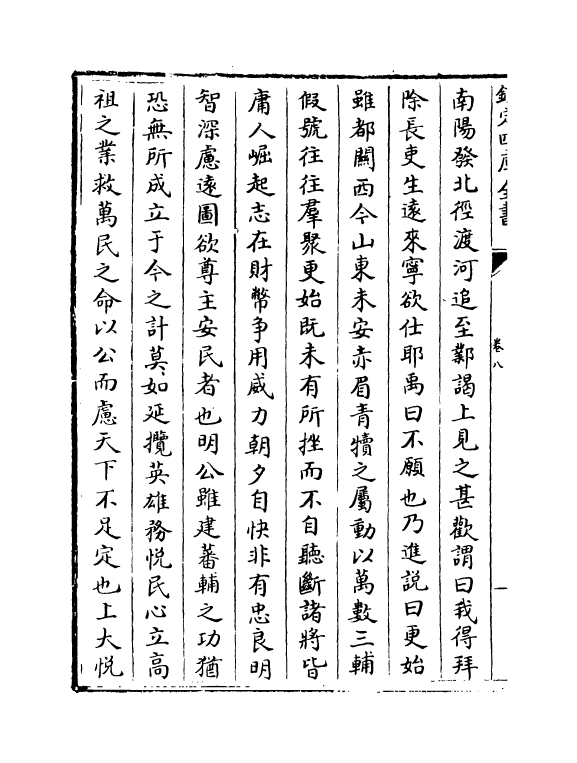 欽定四庫全書
卷八
一
南陽發北徑渡河追至鄴謁上見之甚歡謂曰我得拜
除長吏生遠來寧欲仕耶禹曰不願也乃進説曰更始
雖都關西今山東未安赤眉青犢之屬動以萬數三輔
假號往往羣聚更始既未有所挫而不自聽斷諸將皆
庸人崛起志在財幣爭用威力朝夕自快非有忠良明
智深慮遠圖欲尊主安民者也明公雖建蕃輔之功猶
恐無所成立于今之計莫如延攬英雄務悦民心立高
祖之業救萬民之命以公而慮天下不足定也上大悦